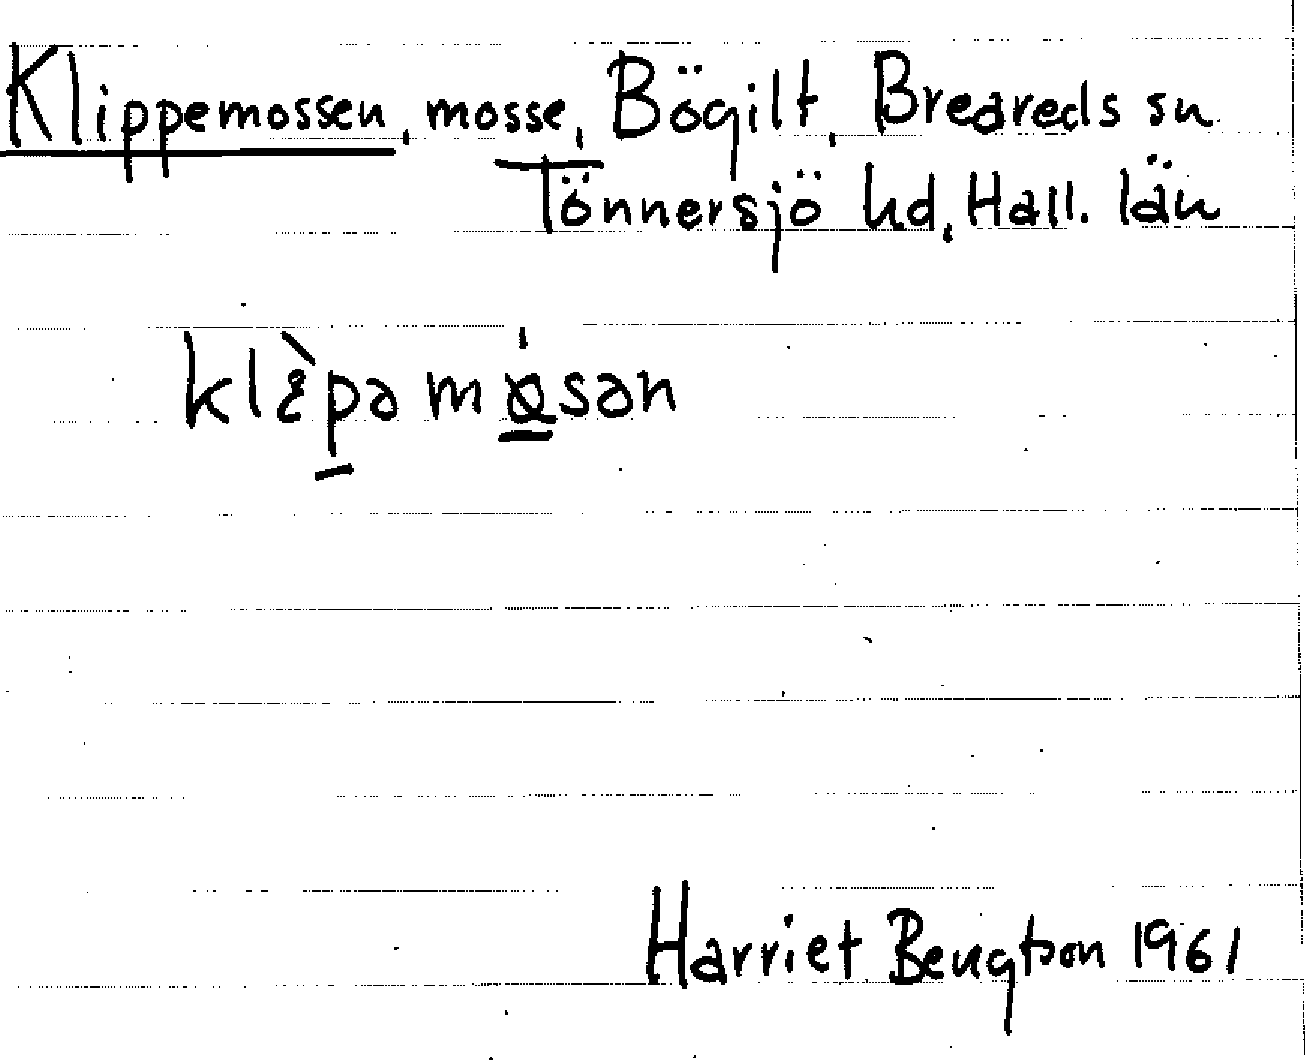 Klippemossen, mosse, Bögilt, Breareds sn
Tönnersjö hd, Hall. län
Harriet Bengtson 1961